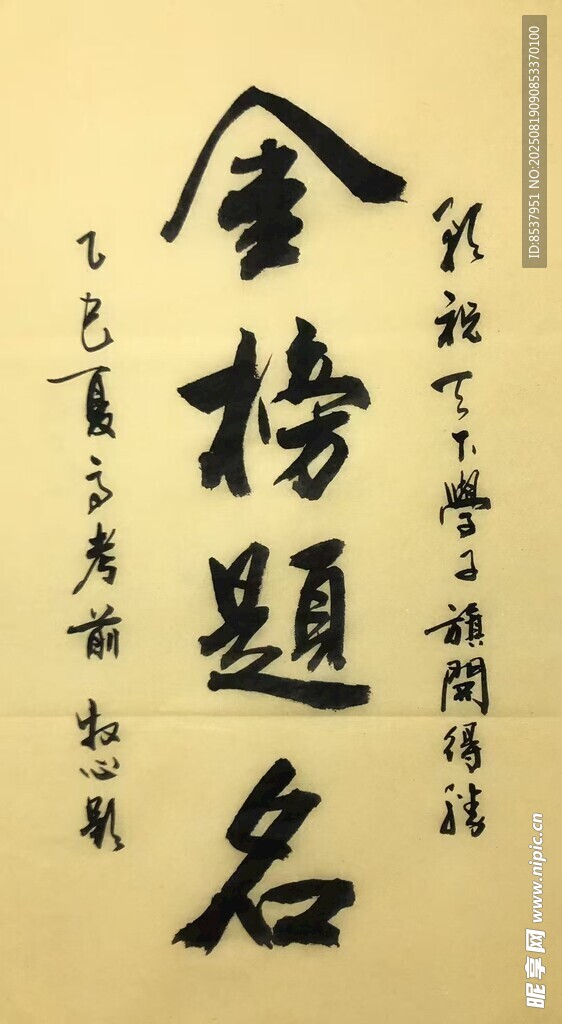 预祝天下學子旗開得勝
金榜題名
乙巳夏高考前 牧心題
ID:8537951 NO:20250819090853370100
昵享网 www.nipic.cn